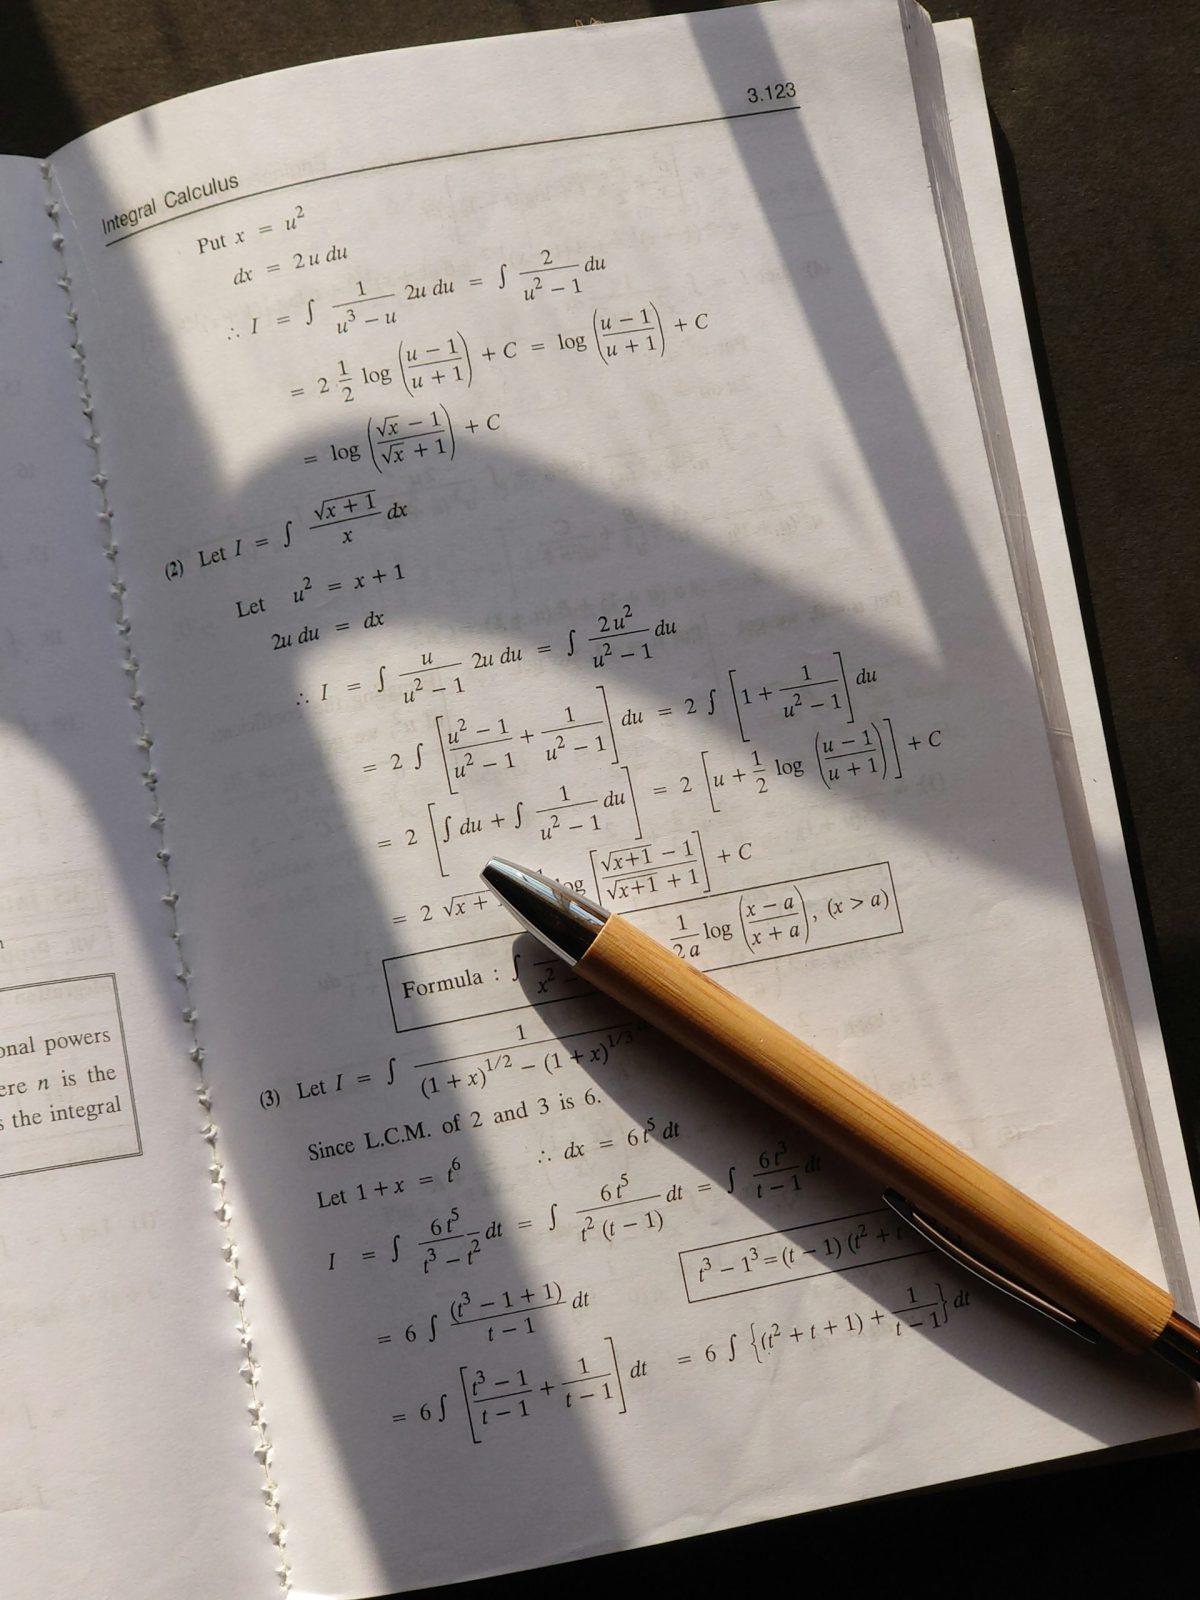 3.123
Integral Calculus
Put x = u²
dx = 2u du
∴ I = ∫ 1/(u³ − u) 2u du = ∫ 2/(u² − 1) du
= 2 1/2 log ((u − 1)/(u + 1)) + C = log ((u − 1)/(u + 1)) + C
= log ((√x − 1)/(√x + 1)) + C
(2) Let I = ∫ √(x + 1)/x dx
Let u² = x + 1
2u du = dx
∴ I = ∫ u/(u² − 1) 2u du = ∫ 2u²/(u² − 1) du
= 2 ∫ [(u² − 1)/(u² − 1) + 1/(u² − 1)] du = 2 ∫ [1 + 1/(u² − 1)] du
= 2 [∫ du + ∫ 1/(u² − 1) du] = 2 [u + 1/2 log ((u − 1)/(u + 1))] + C
= 2 √x + log [(√(x+1) − 1)/(√(x+1) + 1)] + C
Formula : ∫ x² 1/2a log ((x − a)/(x + a)), (x > a)
(3) Let I = ∫ 1/((1 + x)^1/2 − (1 + x)^1/3)
Since L.C.M. of 2 and 3 is 6.
Let 1 + x = t⁶ ∴ dx = 6t⁵ dt
I = ∫ 6t⁵/(t³ − t²) dt = ∫ 6t⁵/(t² (t − 1)) dt = ∫ 6t³/(t − 1) dt
t³ − 1³ = (t − 1) (t² +
= 6 ∫ (t³ − 1 + 1)/(t − 1) dt
= 6 ∫ [(t³ − 1)/(t − 1) + 1/(t − 1)] dt = 6 ∫ {(t² + t + 1) + 1/(t − 1)} dt
powers
n is the
the integral